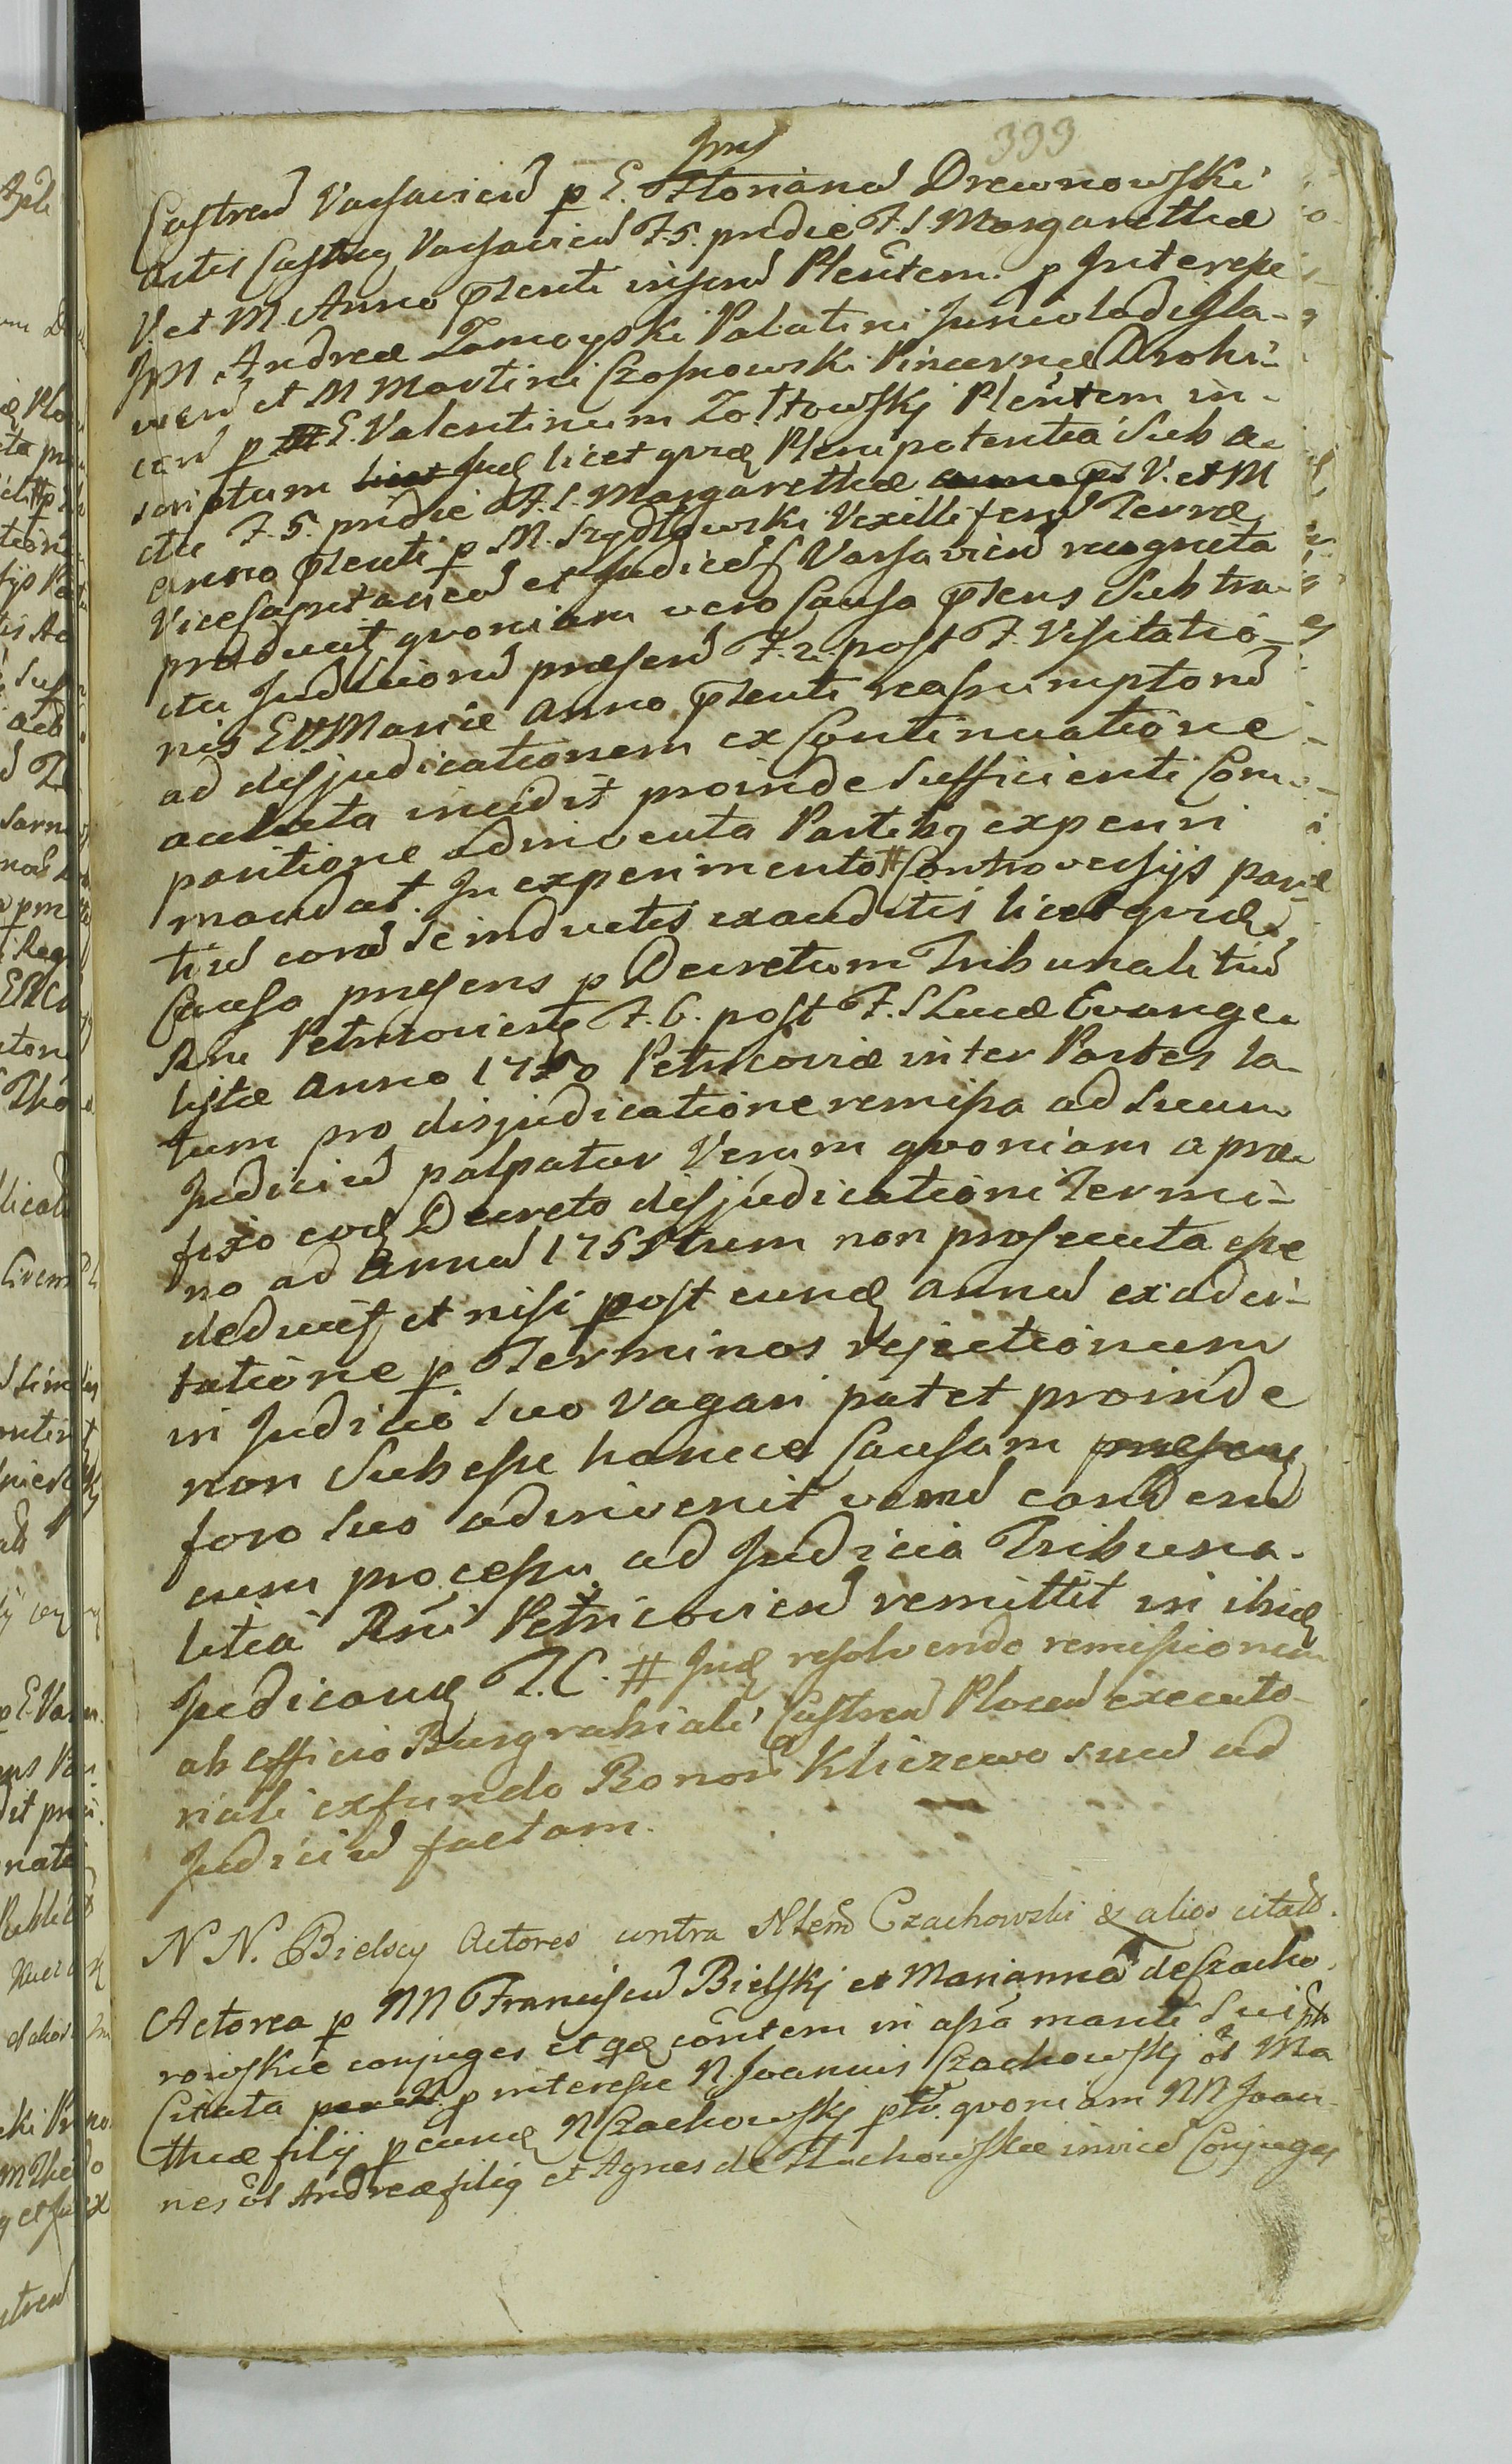 399
Jrus
Castren Varsavien p E. Florianum Drewnowski
actis Castreņ Varsavien F. 5. pridie F. S. Margarethæ
V. et M. Anno pleñti inseri Pleñtem. p Interesse
JM Andreæ Zamoyski Palatini Junivladisla-
vien et M Martini Czosnowski Pincernæ Drohi-
cen p E. Valentinum Żołtowskj Pleñtem in-
scriptum Judq licet quidq Plenipotentia sub a-
ctu F. 5. pridie F. S. Margarethæ V. et M
anno pleñti p M. Szydłowski Vexilliferum Terræ
Vicescapitaneum et Judicem S Varsavien recognita
producit quoniam vero Causa plens Sub tra-
ctu Judiciorum præsen F. 2. post F. Visitatio-
nis BVMariæ anno pleñti reassumptorum
ad disjudicationem ex Continuatione
actuata incidit proinde sufficienti Com-
paritione adinventa Partibq experiri
mandat. In experimento # Controversijs par-
tium coram se inductis exauditis licet quidq
Causa presens p Decretum Tribunalitium
Rñi Petricovienq F. 6. post F. S Lucæ Evange-
listæ anno 1750 Petricoviæ inter Partes la-
tum pro disjudicatione remissa ad suum
Judicium palpatur Verum quoniam a præ-
fixo eodq Decreto disjudicationi Termi-
no ad annum 1751mum non prosecuta esse
deducit et nisi post eundq annum ex adci-
tatione p Terminos rejectionum
in Judicio suo vagari patet proinde
non Subesse hancce Causam
foro suo adinvenit verum eandem
cum processu ad Judicia Tribuna-
litia Rñi Petricovien remittit in ibidq
Judicandq T. C. # Judq resolvendo remissionem
ab officio Burgrabiali Castren Plocen executo-
riali exfundo Bonorum Kliczewo suum ad
Judicium factam.
N N. Bielscy Actores contra Nlem Czachowski & alios citatos.
Actorea p NN Franciscum Bielskj et Mariannam de Czacho-
rowskie conjuges et qdq coñtem in assã mariti sui pto
Citata p interesse N. Joannis Czachowskj ol Ma
thiæ filij p eundq N Czachowskj pto. quoniam NN Joan-
nes ol Andreæ filiq et Agnes de Stachowskie invicem Conjuges